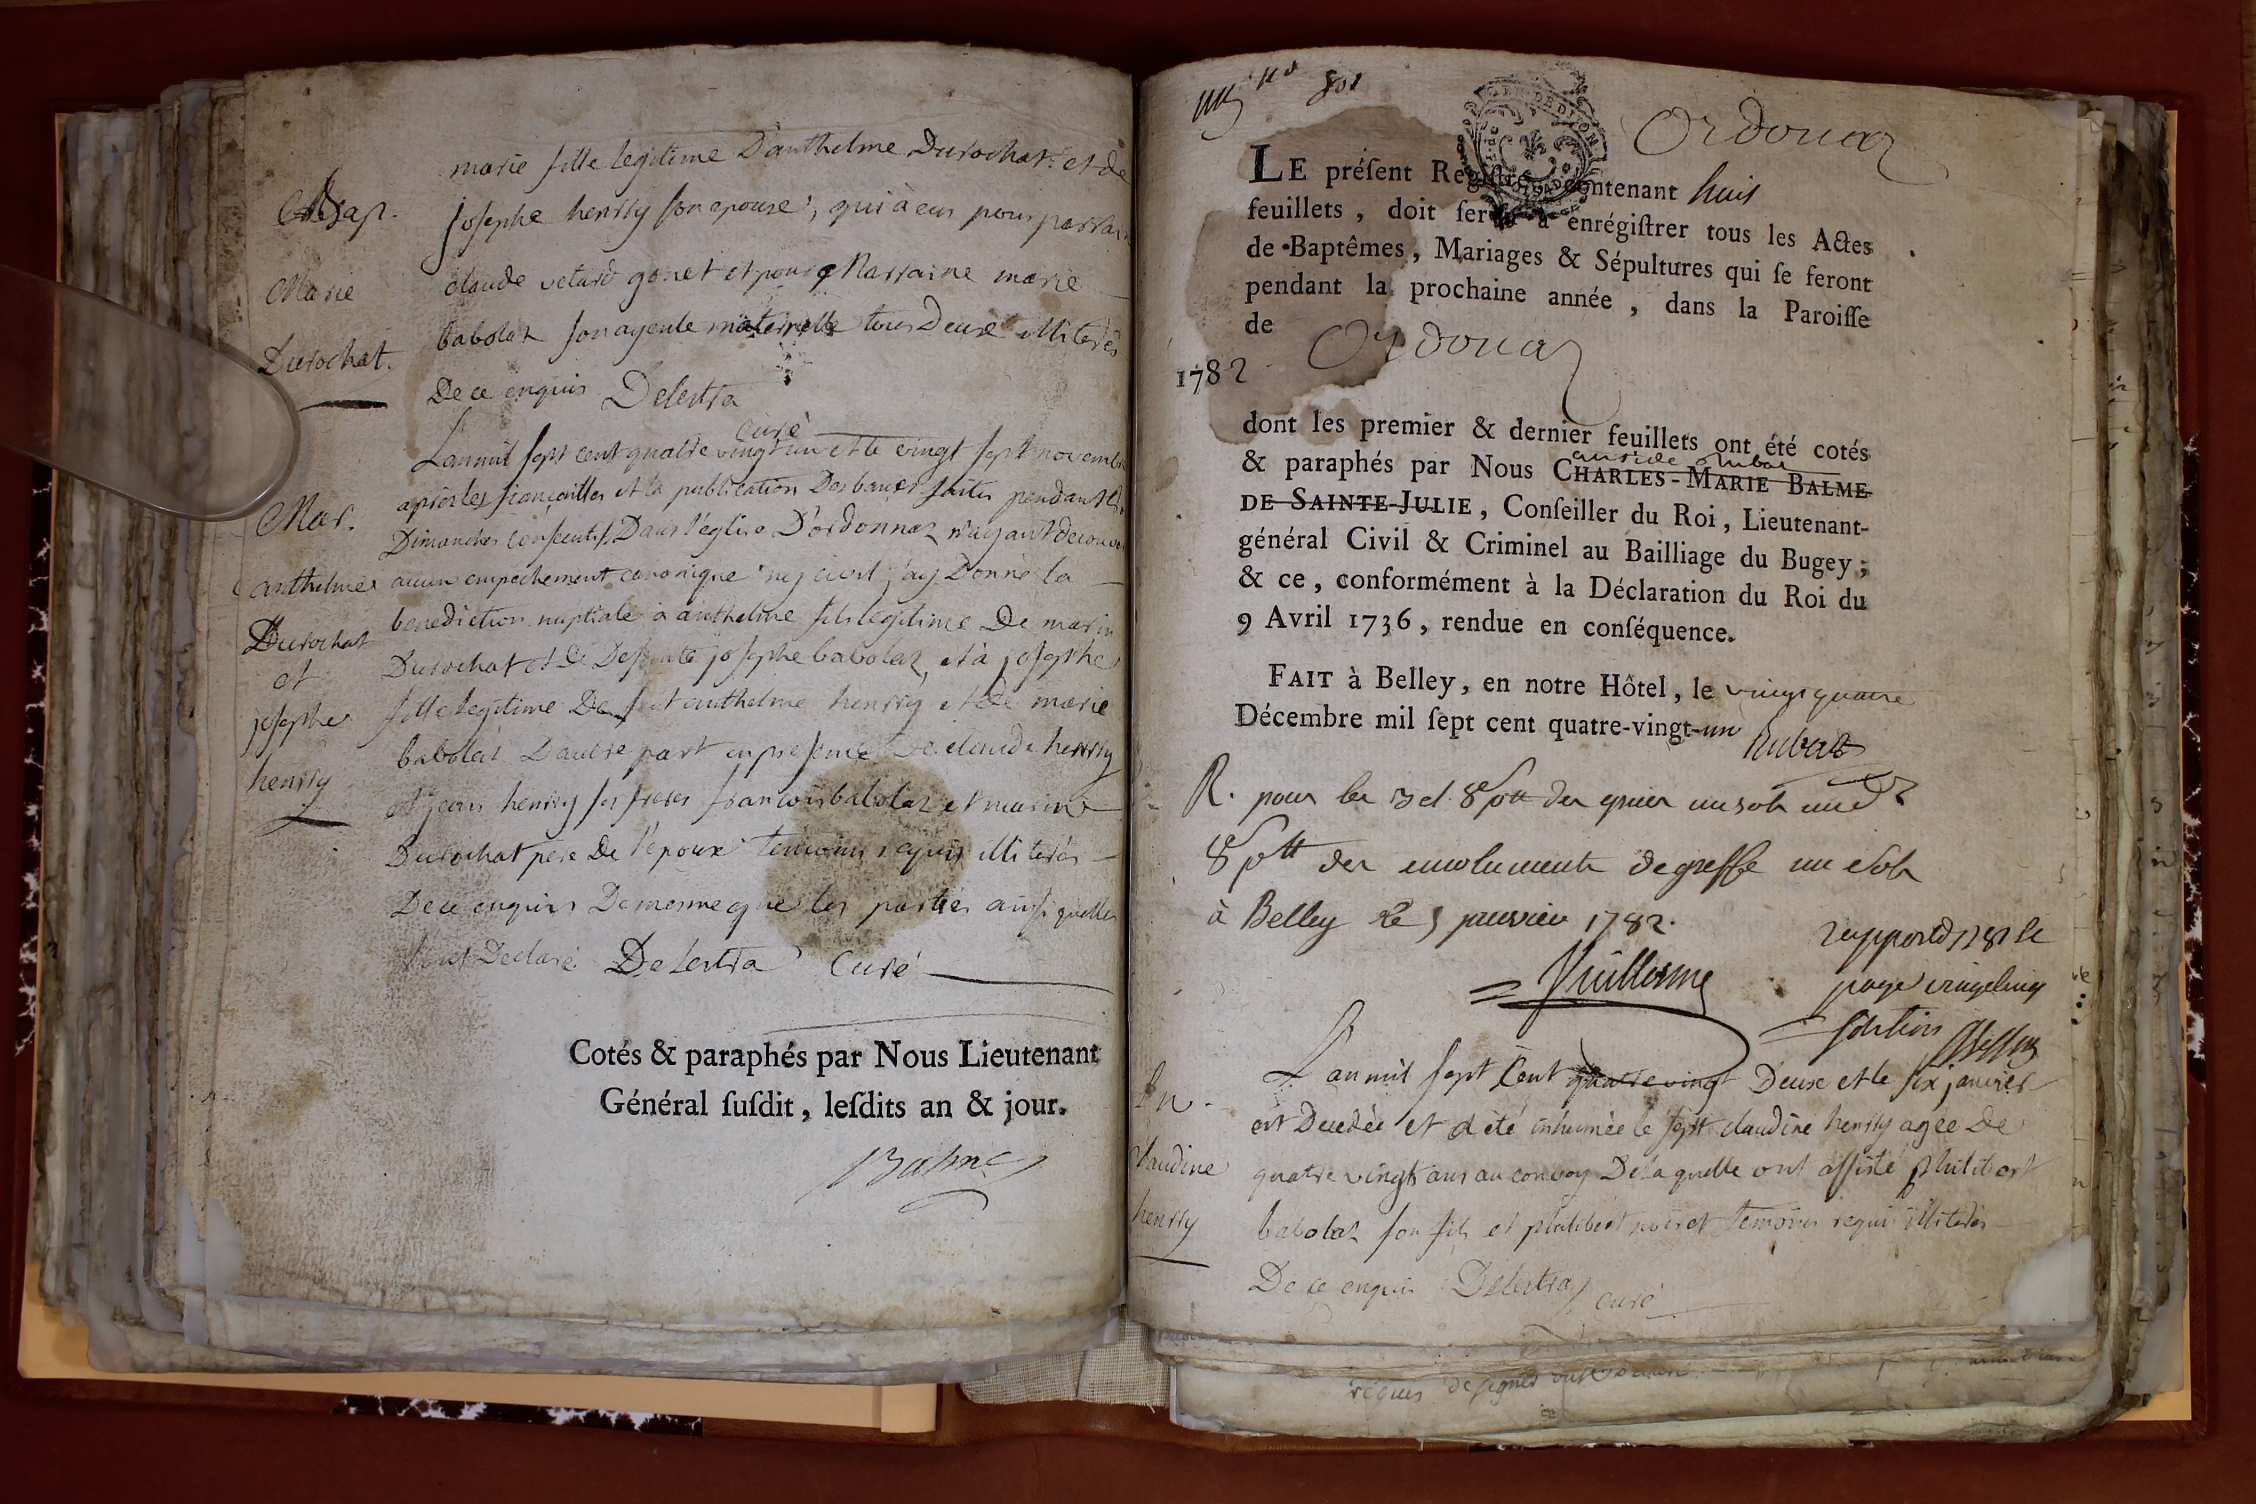 Bap.
Marie
Durochat.
marie fille legitime D'anthelme Durochat. et de
josephe henrry son epouse, qui à eus pour parrain
claude vetard gonet et pour Marraine marie
babolaz son ayeule maternelle tous Deux illiterés
De ce enquis Delestra
curé
Mar.
anthelme
Durochat
et
josephe
henrry
L'an mil sept cent quatre vingt un et le vingt sept novembre
après les fiançailles et la publication Des bancs faites pendant
Dimanches consecutifs Dans l'eglise D'ordonnaz n'ayant decouvert
aucun empechement canonique ny civil j'ay Donné la
benediction nuptiale à anthelme fils legitime De marin
Durochat et De Deffunte josephe babolaz, et à josephe
fille legitime De feu anthelme henrry et De marie
babolaz D'autre part en presence De claude henrry
et jean henrry ses freres francois babolaz et marin
Durochat pere De l'epoux temoins requis illiterés
De ce enquis De mesme que les parties ainsi qu'elles
l'ont Declaré Delestra curé
Cotés & paraphés par Nous Lieutenant
Général suſdit, leſdits an & jour.
Balme
801
Ordonaz
LE préſent Regiſtre, contenant huit
feuillets, doit ſervir à enrégiſtrer tous les Actes
de Baptêmes, Mariages & Sépultures qui ſe feront
pendant la prochaine année, dans la Paroiſſe
de Ordonaz
1782
dont les premier & dernier feuillets ont été cotés
& paraphés par Nous CHARLES-MARIE BALME
DE SAINTE-JULIE, Conſeiller du Roi, Lieutenant-
général Civil & Criminel au Bailliage du Bugey;
& ce, conformément à la Déclaration du Roi du
9 Avril 1736, rendue en conſéquence.
FAIT à Belley, en notre Hôtel, le vingt quatre
Décembre mil ſept cent quatre-vingt-un
Rubat
R. pour les 3 et 8 s. p. tt
8 s. p. tt des emoluments de greffe un sols
à Belley le 5 janvier 1782.
Vuillerme
In.
Claudine
henrry
L'an mil sept Cent quatre vingt Deux et le six janvier
est Decedée et a été inhumée le sept claudine henrry agée De
quatre vingts ans au convoy De laquelle ont assisté philibert
babolaz son fils et philibert temoins requis illiterés
De ce enquis Delestra curé